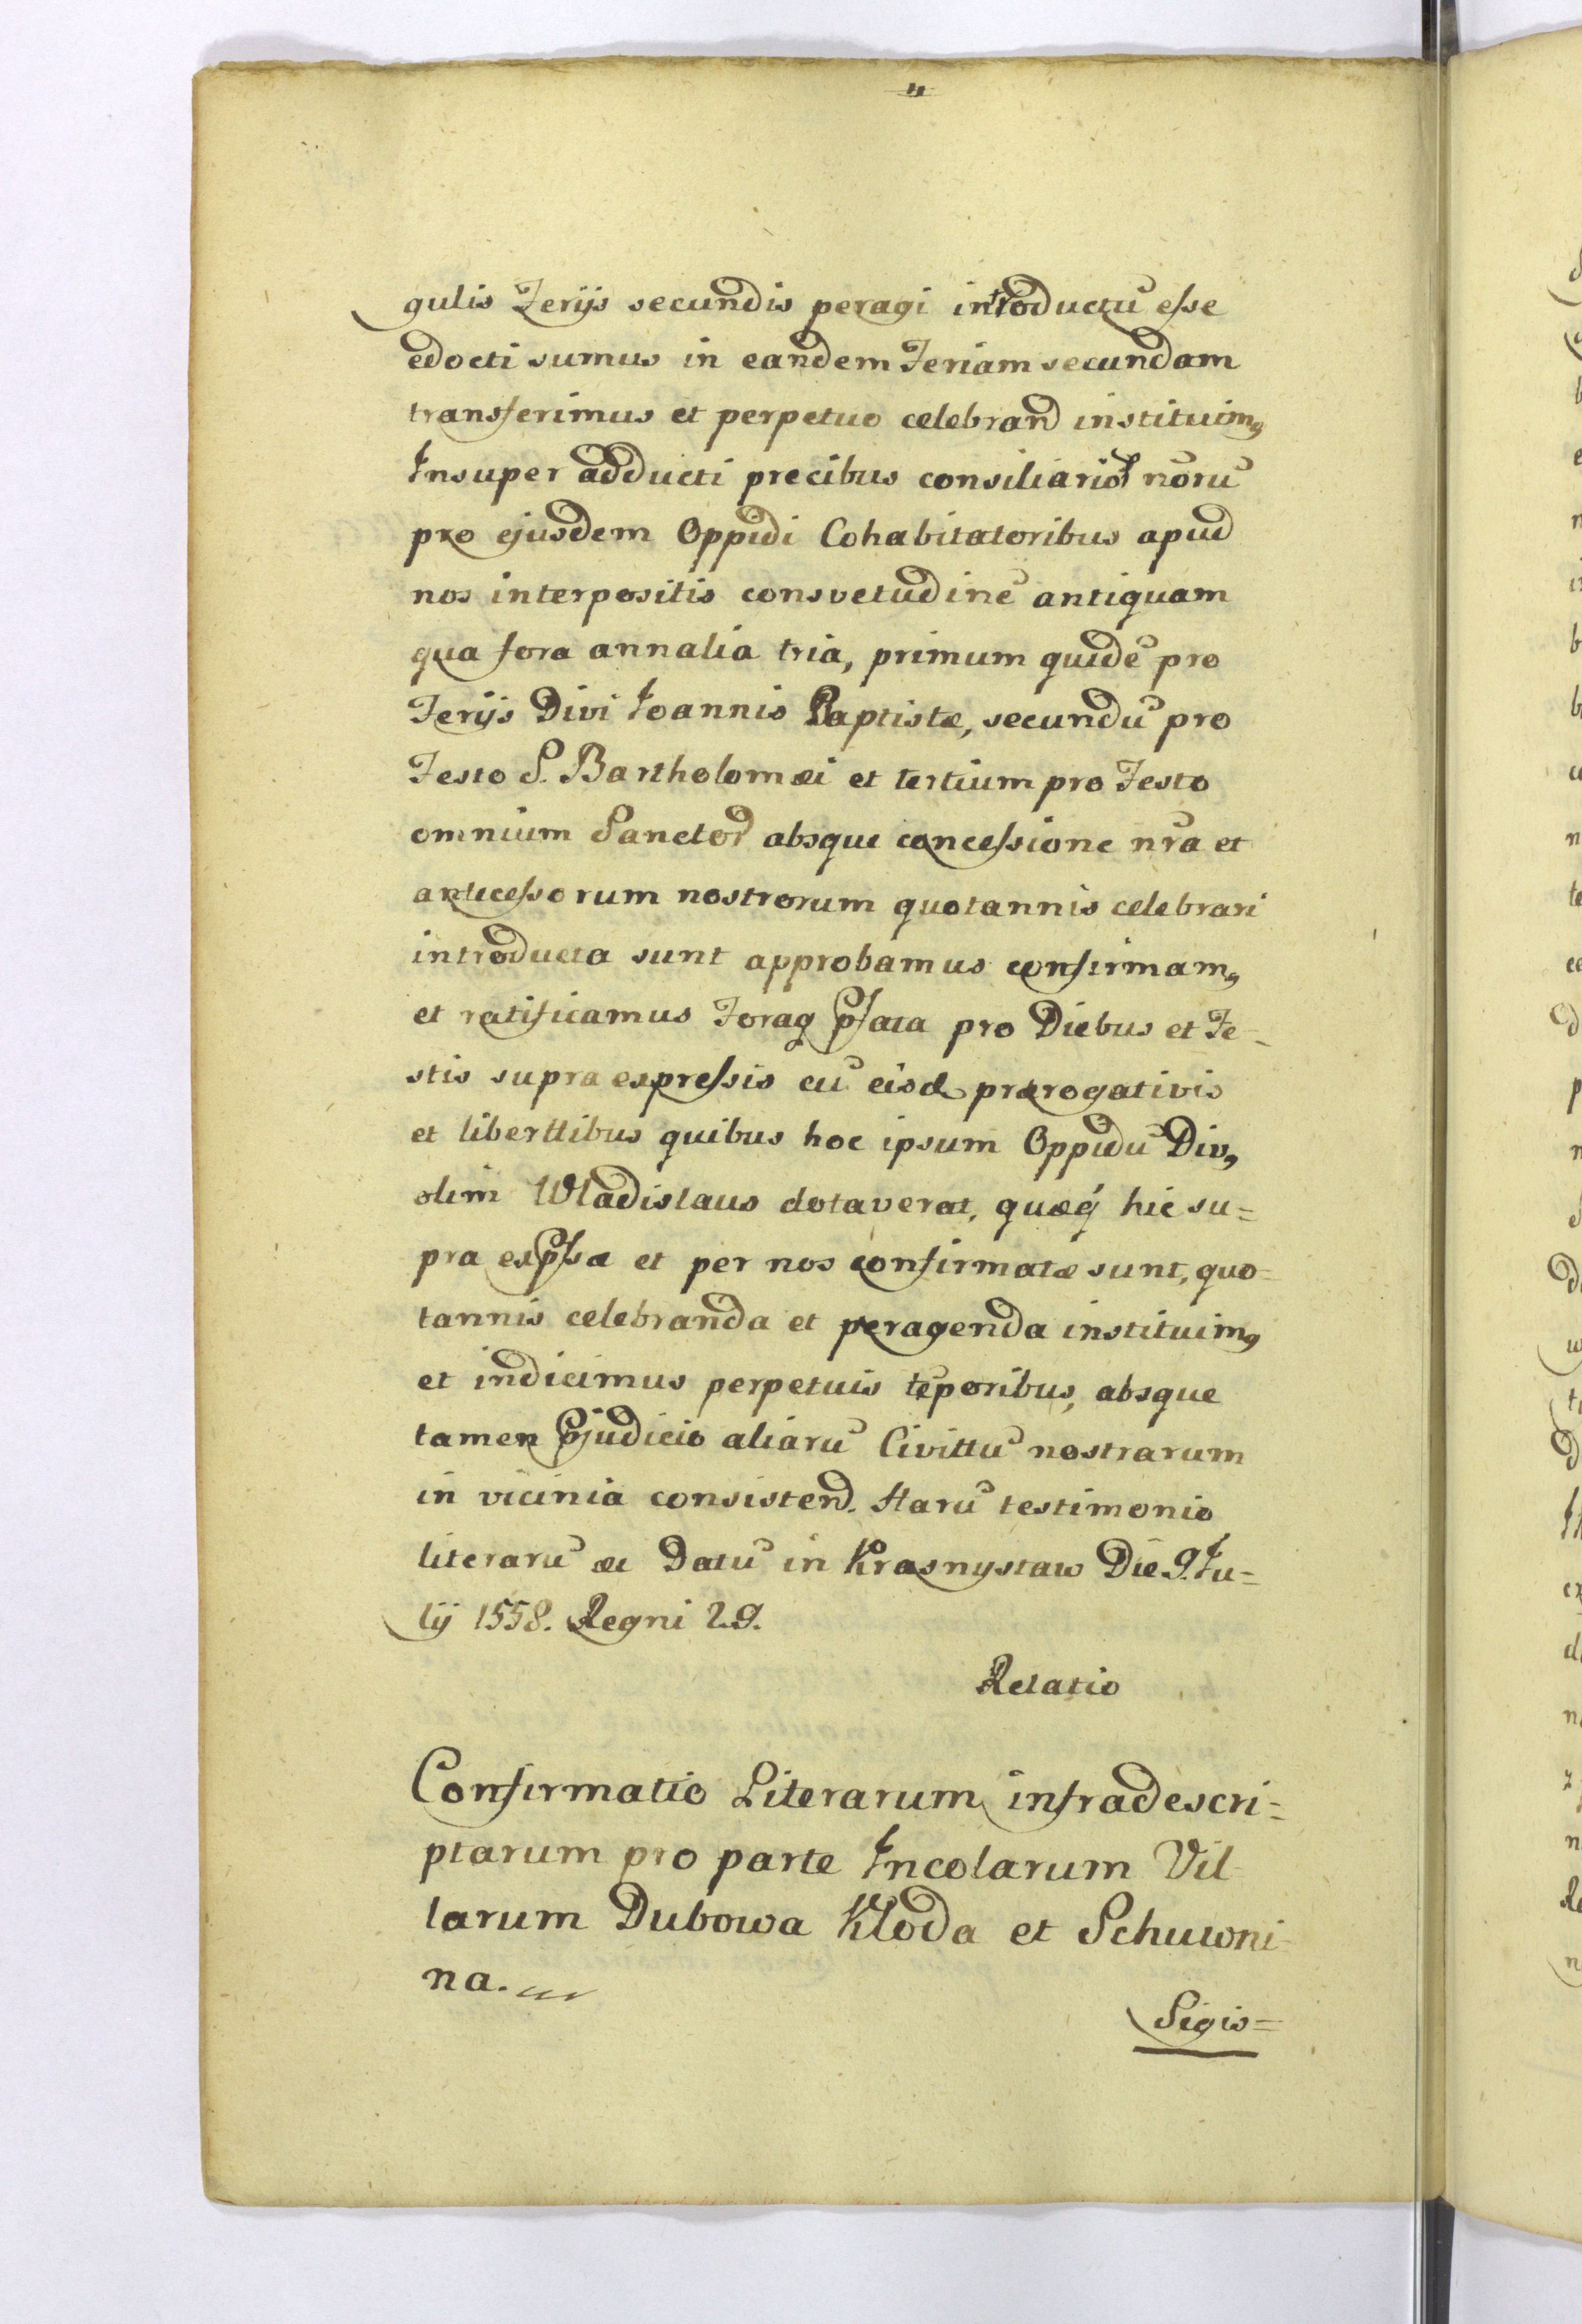 gulis Ferijs secundis peragi introductũ esse
edocti sumus in eandem Feriam secundam
transferimus et perpetuo celebrand instituimꝰ
Insuper adducti precibus consiliarioꝝ nõrũ
pro ejusdem Oppidi Cohabitatoribus apud
nos interpositis consvetudinẽ antiquam
qua fora annalia tria, primum quidẽ pro
Ferijs Divi Ioannis Baptistæ, secundũ pro
Festo S. Bartholomæi et tertium pro Festo
omnium Sanctoꝝ absque concessione nr̃a et
antecessorum nostrorum quotannis celebrari
introducta sunt approbamus confirmamꝰ
et ratificamus Foraq pfata pro Diebus et Fe-
stis supra expressis cũ eisd prærogativis
et liberttibus quibus hoc ipsum Oppidũ Divꝰ
olim Wladislaus dotaverat, quæq́ hic su=
pra expssæ et per nos confirmatæ sunt, quo=
tannis celebranda et peragenda instituimꝰ
et indicimus perpetuis tẽporibus, absque
tamen pjudicio aliarũ Civittũ nostrarum
in vicinia consistend. Harũ testimonio
literarũ &c Datũ in Krasnystaw Die 9. Iu=
lij 1558. Regni 29.
Relatio
Confirmatio Literarum infradescri=
ptarum pro parte Incolarum Vil-
larum Dubowa Kloda et Schuwni-
na.
Sigis=